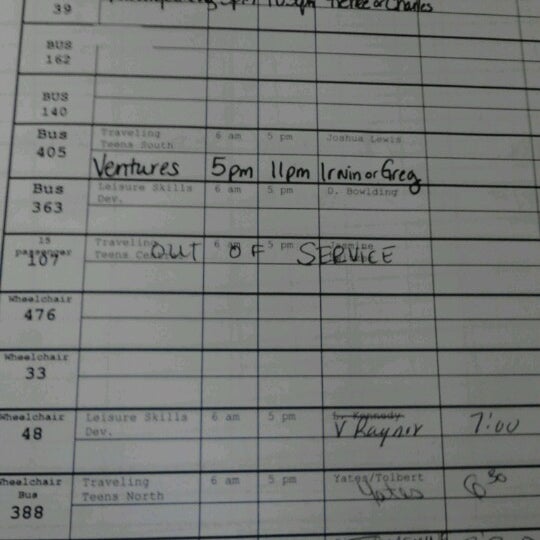 39 5pm 10:30pm Renee or Charles
BUS
162
BUS
140
Bus Traveling 6 am 5 pm Joshua Lewis
405 Teens South
Ventures 5pm 11pm Irwin or Greg
Bus Leisure Skills 6 am 5 pm D. Bowlding
363 Dev.
15 Traveling 6 am 5 pm Jasmine
passenger Teens
107 OUT OF SERVICE
Wheelchair
476
Wheelchair
33
Wheelchair Leisure Skills 6 am 5 pm L. Kennedy
48 Dev. V Raynor 7:00
Wheelchair Traveling 6 am 5 pm Yates/Tolbert
Bus Teens North Yates 6 30
388